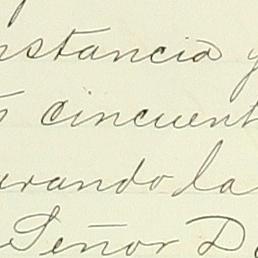 nstancia y
cincuent
rando la
Señor D